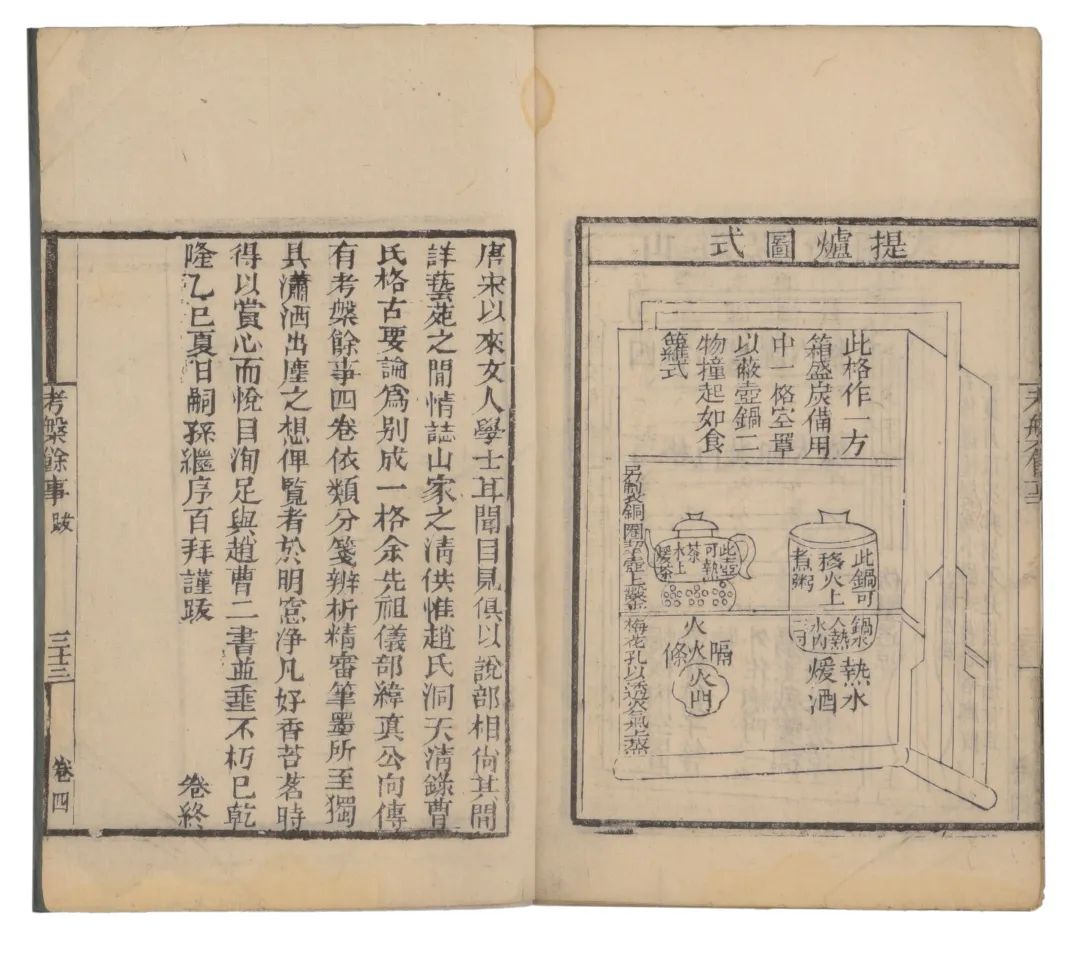 提爐圖式
此格作一方
箱盛炭備用
中一格空罩
以蔽壺鍋二
物撞起如食
籮式
此鍋可
移火上
煮粥
鍋水
入熱
水內
二寸
熱水
煖酒
此壺
可熱
茶
水上
煖茶
火
火
隔
條
火門
梅花孔以透火氣上蒸
唐宋以來文人學士耳聞目見俱以說部相尚其間
詳藝苑之閒情誌山家之清供惟趙氏洞天清錄曹
氏格古要論爲別成一格余先祖儀部緯真公向傳
有考槃餘事四卷依類分箋辨析精審筆墨所至獨
具瀟洒出塵之想俾覽者於明窻净凡好香苦茗時
得以賞心而悅目洵足與趙曹二書並垂不朽巳乾
隆乙巳夏日嗣孫繼序百拜謹跋
卷終
考槃餘事
跋
三十三
卷四